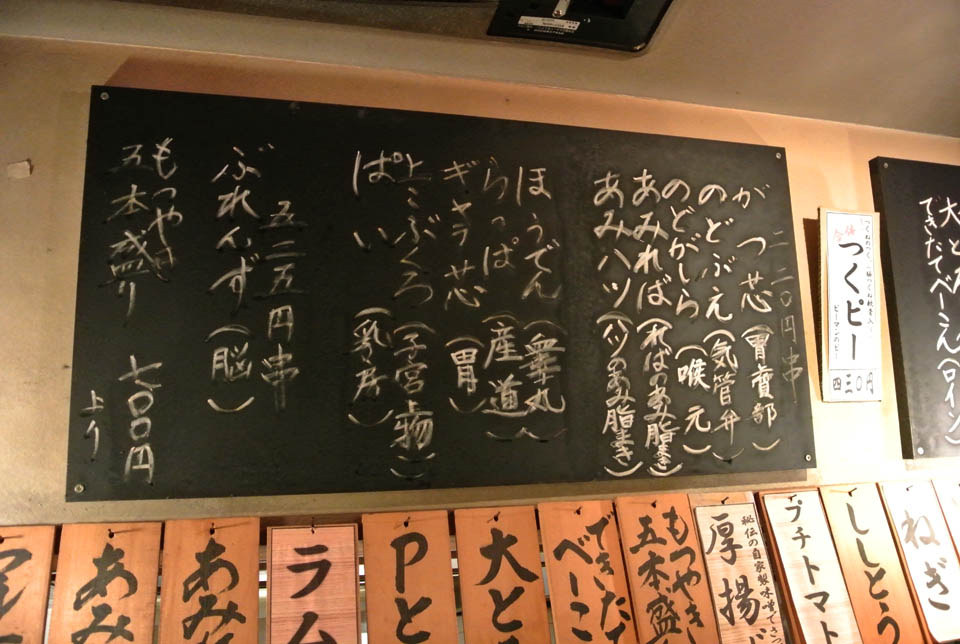 二二〇円串
がつ芯(胃賁部)
のどぶえ(気管弁)
のどがしら(喉元)
あみれば(ればのあみ脂まき)
あみハツ(ハツのあみ脂まき)
ほうでん(睾丸)
らっぱ(産道)
ギャラ芯(胃)
とこぶくろ(子宮上物)
ぱい(乳房)
五二五円串
ぶれんず(脳)
もつやき
五本盛り 七〇〇円
より
つくピー
ピーマンのピー
四三〇円
大と
できたてベーこん(ロイン)
ねぎ
ししとう
プチトマ
秘伝の自家製味噌で
厚揚
もつやき
五本盛
できた
べーこ
大と
Pと
ラム
あみ
あみ